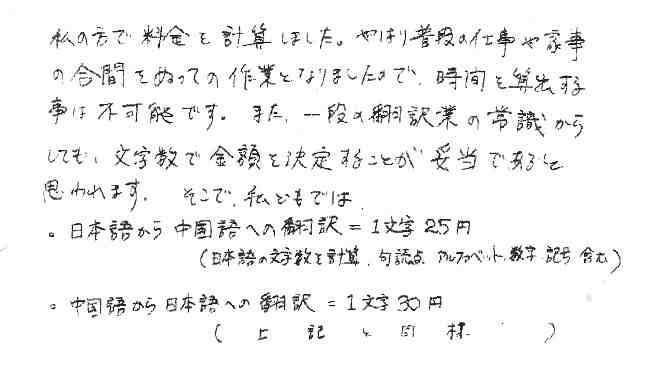 私の方で料金を計算しました。やはり普段の仕事や家事
の合間をぬっての作業となりましたので、時間を算出する
事は不可能です。また、一段の翻訳業の常識から
しても、文字数で金額を決定することが妥当であると
思われます。そこで、私どもでは
。日本語から中国語への翻訳=1文字25円
(日本語の文字数を計算、句読点、アルファベット、数字、記号含む)
。中国語から日本語への翻訳=1文字30円
(上記と同様)